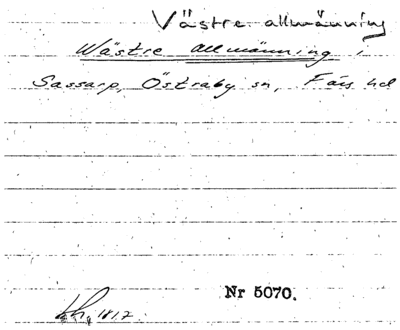 Västre allmänning
Wästre allmänning,
Sassarp, Östraby sn, Färs hd
Lh, 1817.
Nr 5070.